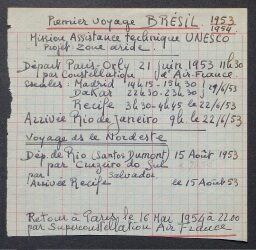 Premier voyage BRÉSIL 1953
1954
Mission Assistance technique UNESCO
Projet zone aride.
Départ Paris-Orly 21 juin 1953 11h30
par Constellation d'Air-France
escales: Madrid 14h15-15h30
Dakar 22h30-23h30 21/6/53
Recife 3h30-4h45 le 22/6/53
Arrivée Rio de Janeiro 9h. le 22/6/53
Voyage ds le Nordeste
Dép. de Rio (Santos Dumont) 15 Août 1953
par Cruzeiro do Sul
par Salvador
Arrivée Recife le 15 Août 53
Retour à Paris le 16 Mai 1954 à 22.00
par Superconstellation Air France